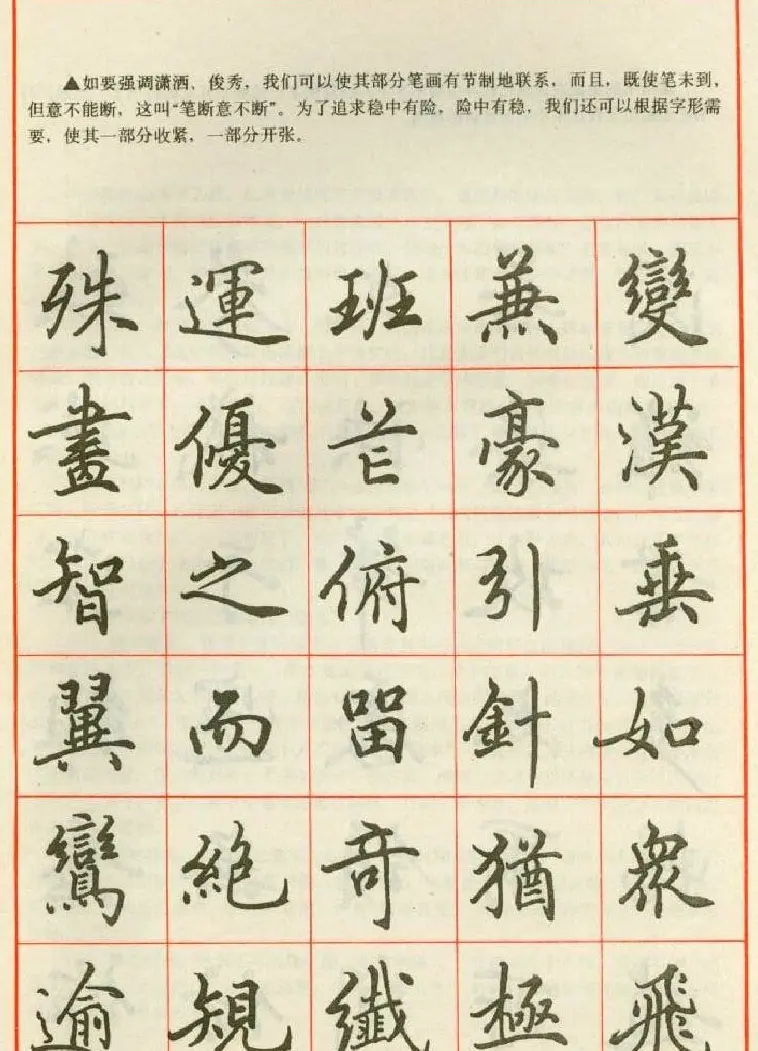 ▲如要强调潇洒、俊秀，我们可以使其部分笔画有节制地联系，而且，既使笔未到，
但意不能断，这叫“笔断意不断”。为了追求稳中有险，险中有稳，我们还可以根据字形需
要，使其一部分收紧，一部分开张。
殊運班兼變
畫優芒豪漢
智之俯引垂
翼而留針如
鸞絕奇猶眾
逾規纖極飛